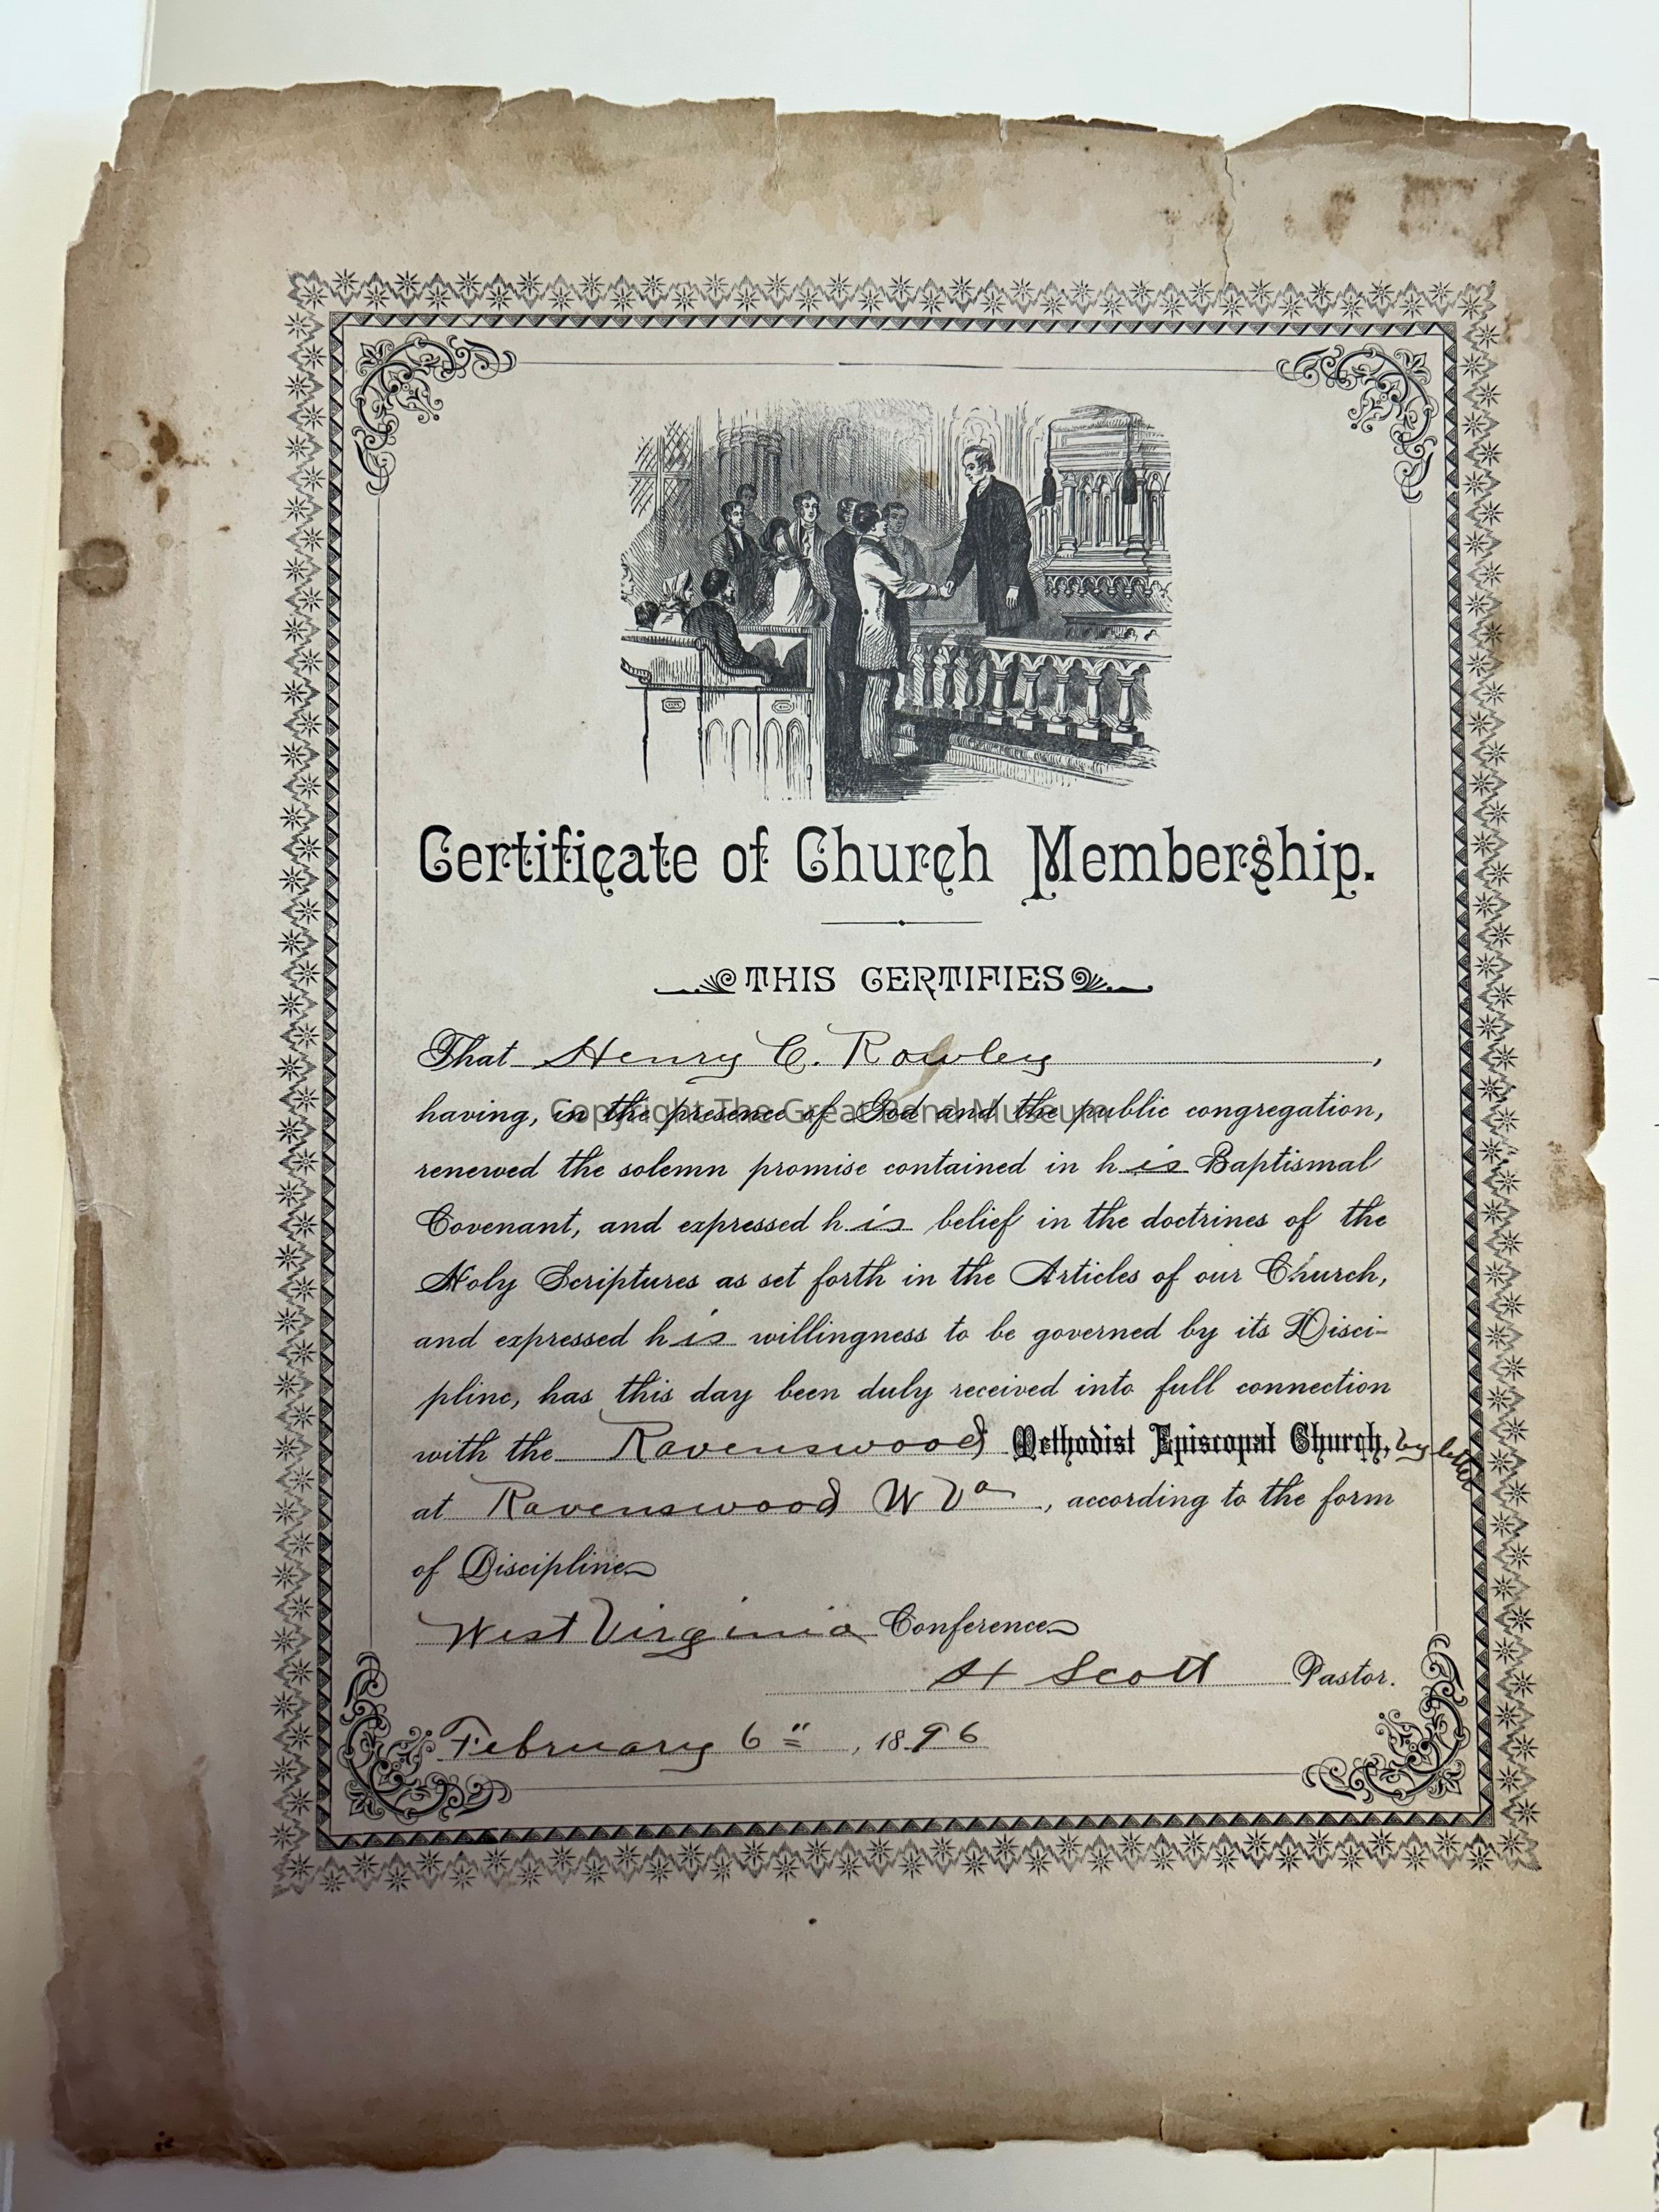 Certificate of Church Membership.
THIS CERTIFIES
That Henry C. Rowley,
Copyright The Great Bend Museum
having, in the presence of God and the public congregation,
renewed the solemn promise contained in his Baptismal
Covenant, and expressed his belief in the doctrines of the
Holy Scriptures as set forth in the Articles of our Church,
and expressed his willingness to be governed by its Disci-
pline, has this day been duly received into full connection
with the Ravenswood Methodist Episcopal Church, by letter
at Ravenswood W Va, according to the form
of Discipline
West Virginia Conference
H Scott Pastor.
February 6", 1896